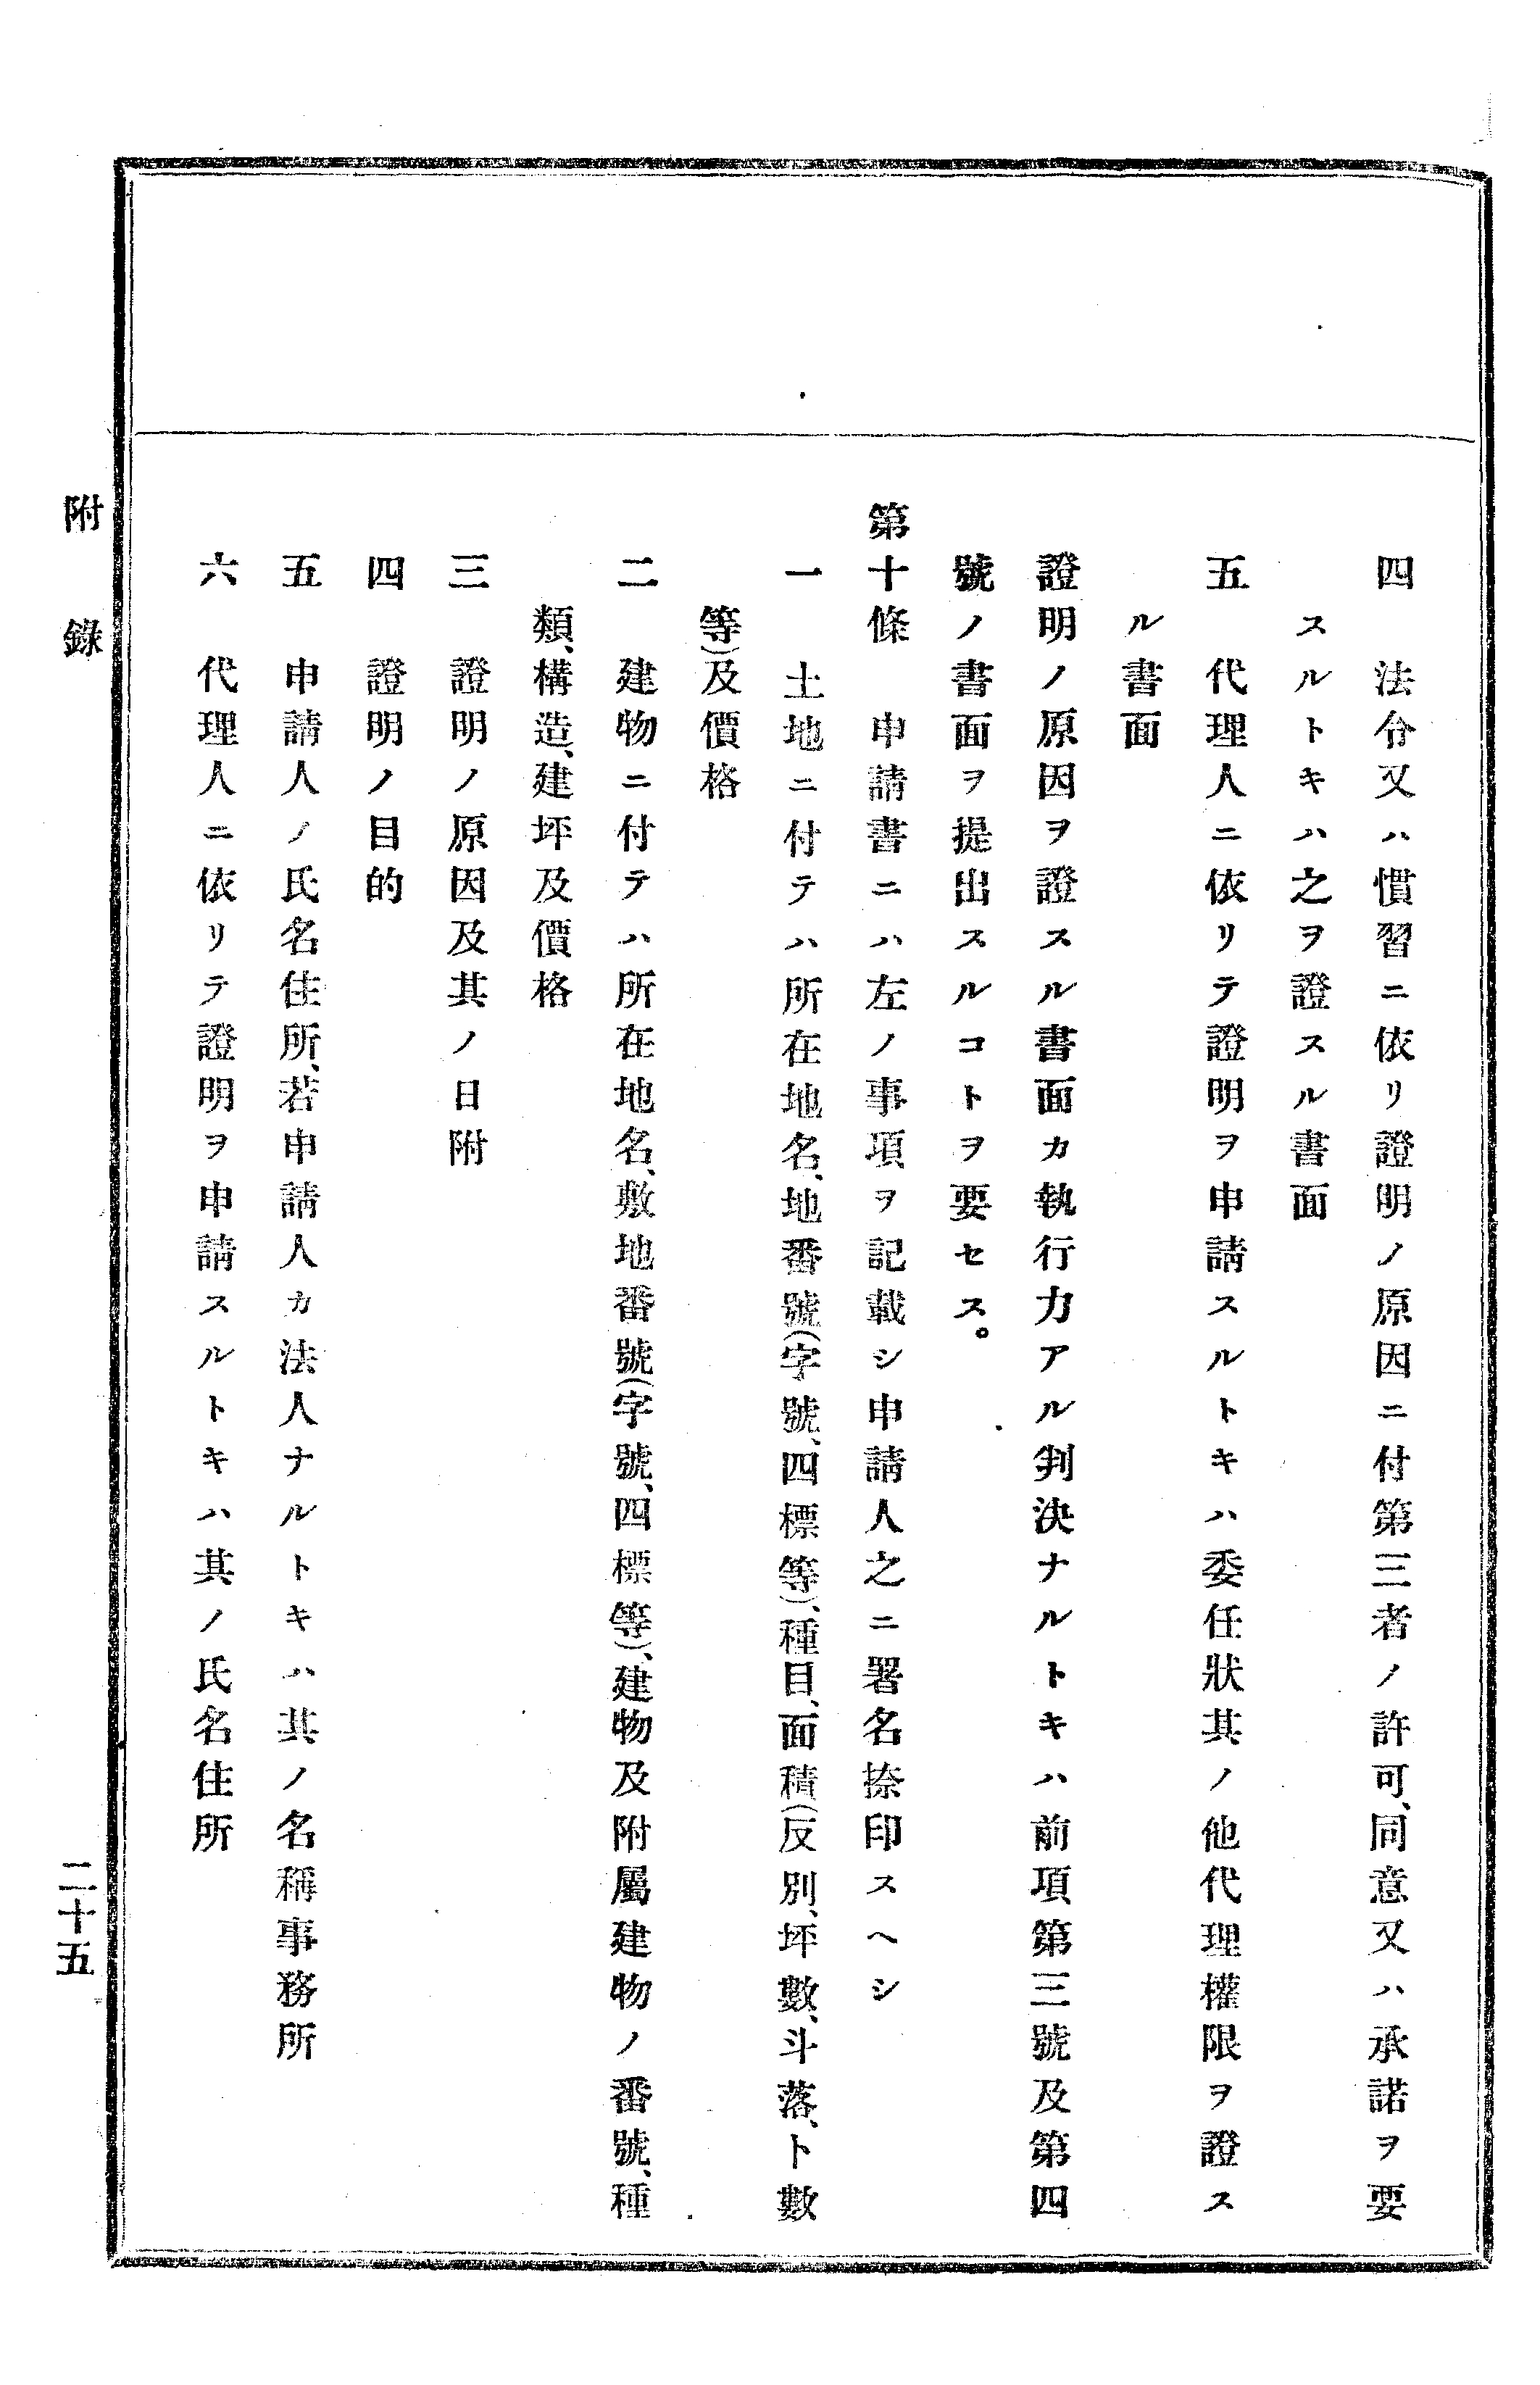 四　法令又ハ慣習ニ依リ證明ノ原因ニ付第三者ノ許可、同意又ハ承諾ヲ要
スルトキハ之ヲ證スル書面
五　代理人ニ依リテ證明ヲ申請スルトキハ委任狀其ノ他代理權限ヲ證ス
ル書面
證明ノ原因ヲ證スル書面カ執行力アル判決ナルトキハ前項第三號及第四
號ノ書面ヲ提出スルコトヲ要セス。
第十條　申請書ニハ左ノ事項ヲ記載シ申請人之ニ署名捺印スヘシ
一　土地ニ付テハ所在地名、地番號(字號、四標等)、種目、面積(反別、坪數、斗落、卜數
等)及價格
二　建物ニ付テハ所在地名、敷地番號(字號、四標等)、建物及附屬建物ノ番號、種
類、構造、建坪及價格
三　證明ノ原因及其ノ日附
四　證明ノ目的
五　申請人ノ氏名住所、若申請人カ法人ナルトキハ其ノ名稱事務所
六　代理人ニ依リテ證明ヲ申請スルトキハ其ノ氏名住所
附錄
二十五